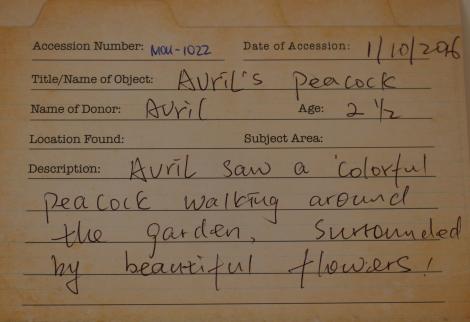 Accession Number: MOU-1022 Date of Accession: 1/10/2016
Title/Name of Object: AVRIL's Peacock
Name of Donor: AVRIL Age: 2 1/2
Location Found: Subject Area:
Description: AVRIL saw a colorful
peacock walking around
the garden, surrounded
by beautiful flowers!